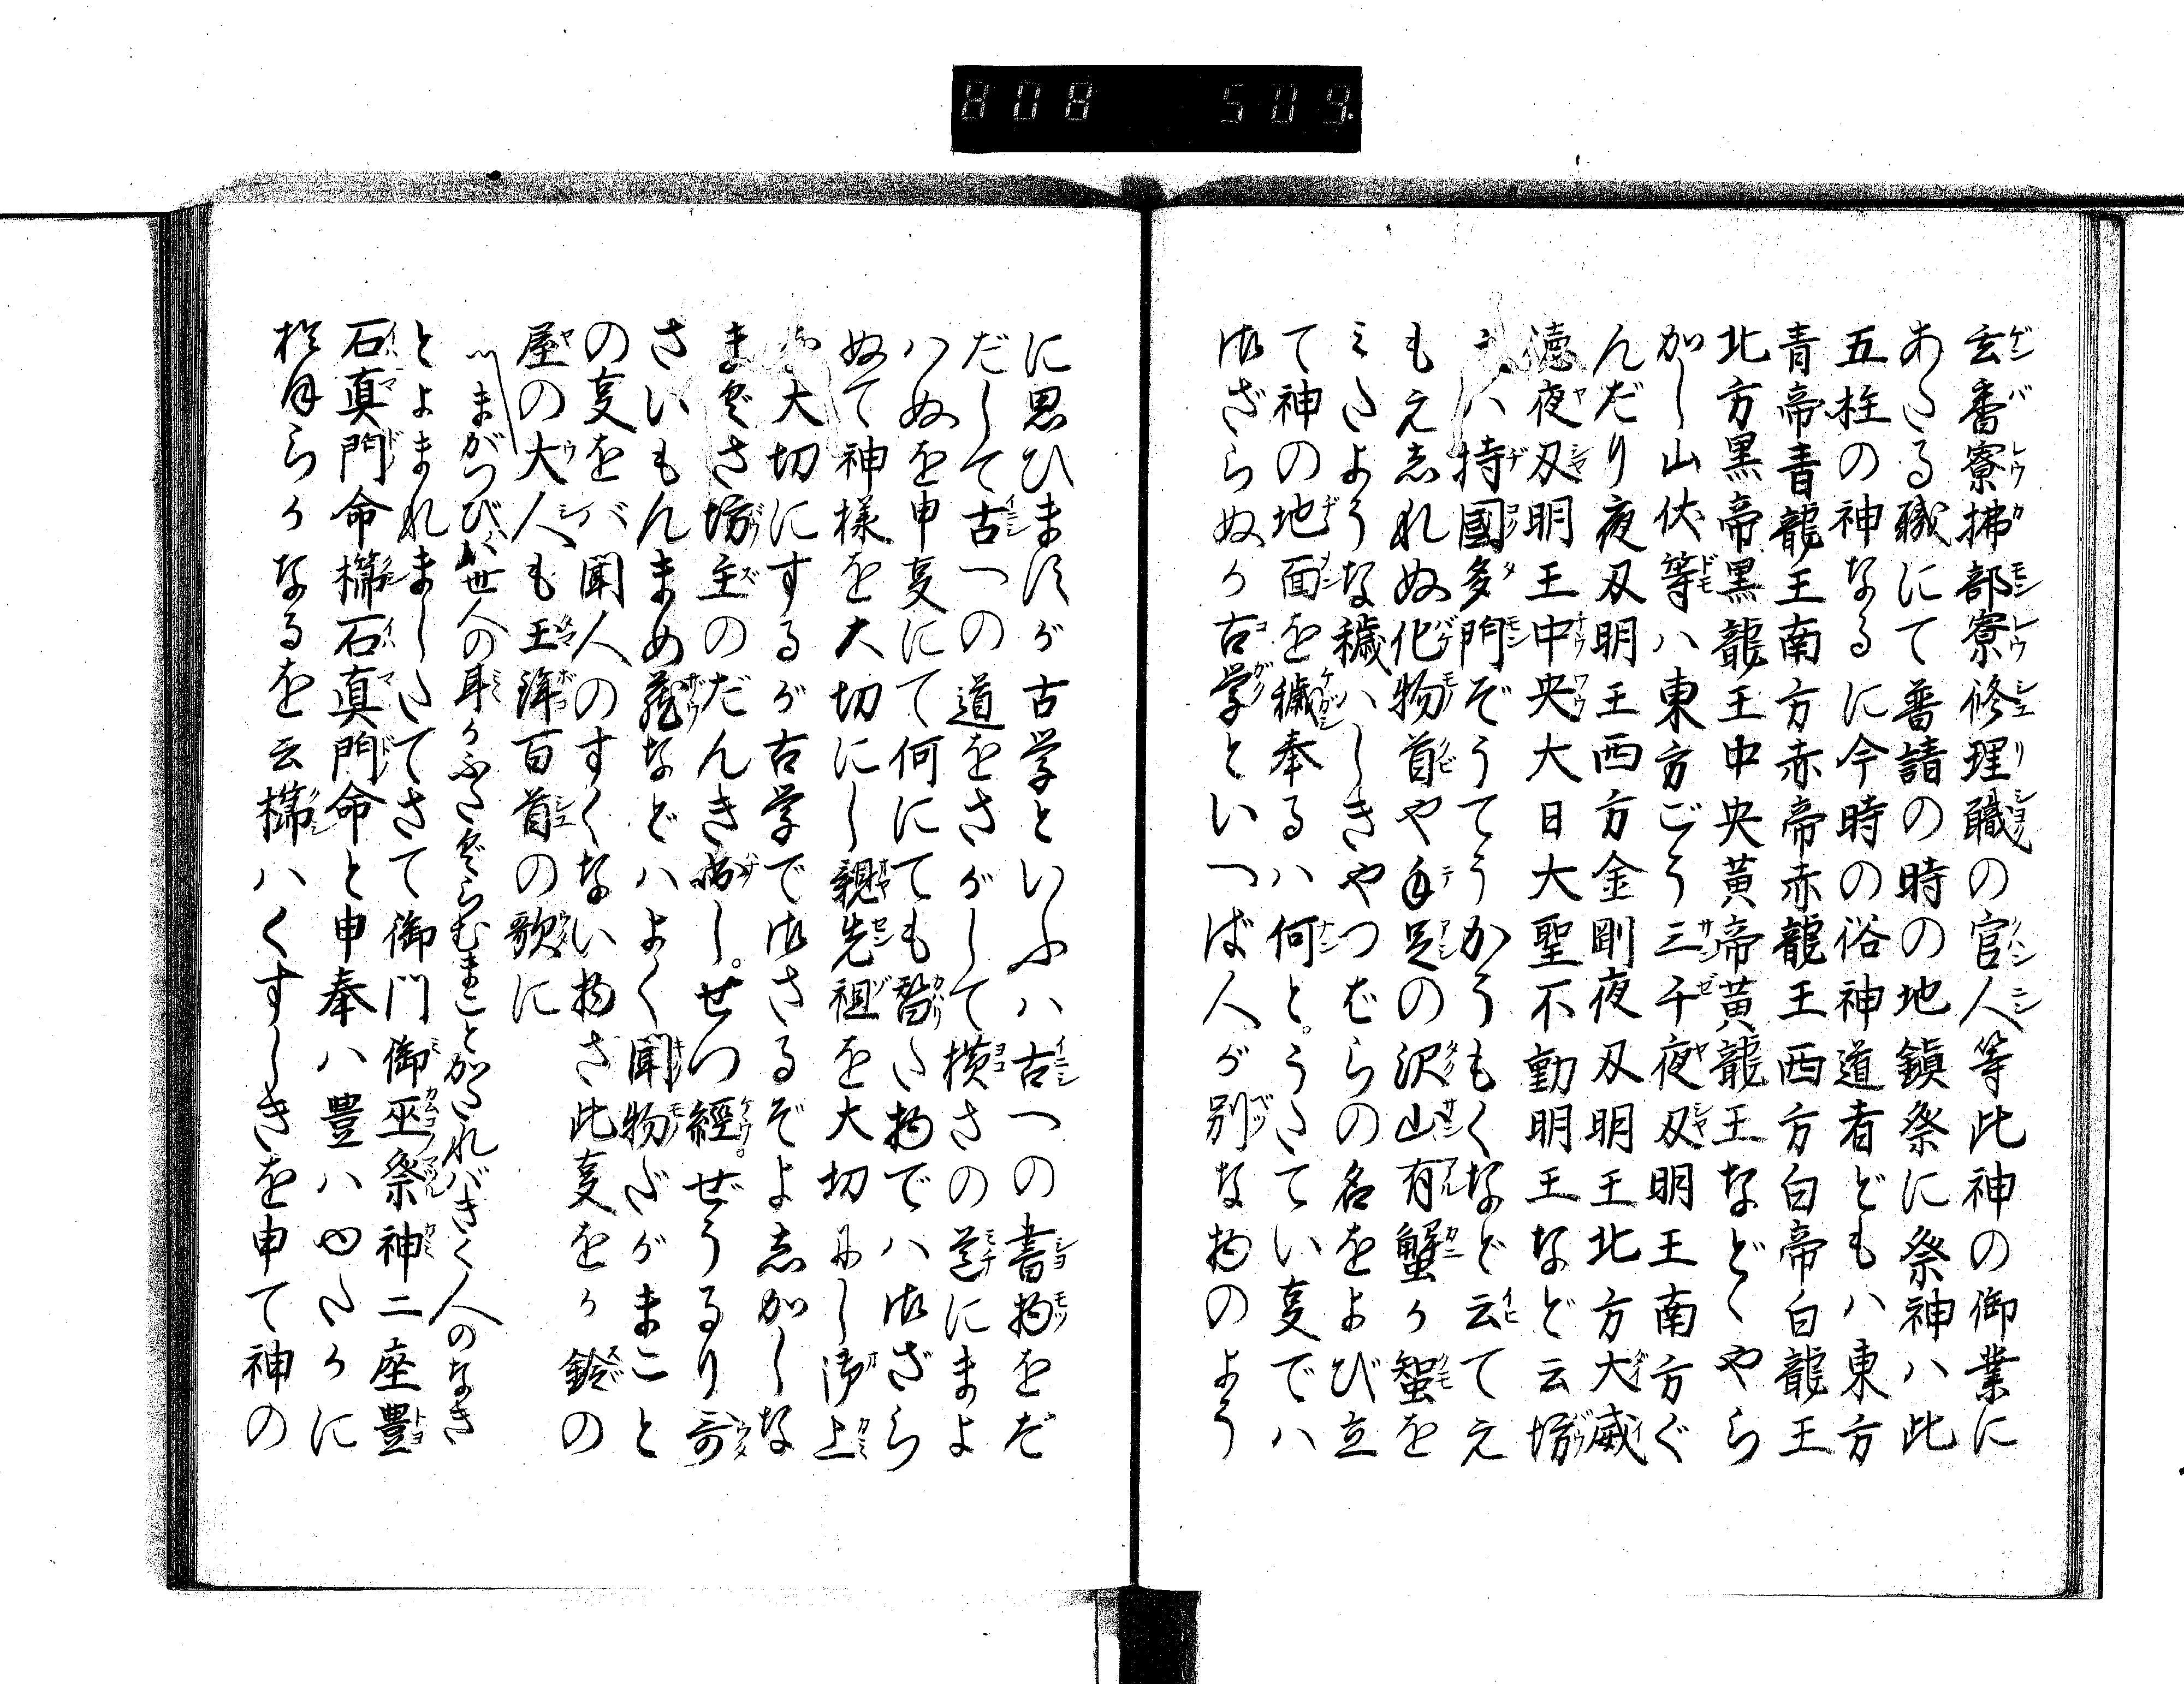 808 509.
玄番寮掃部寮修理職の官人等此神の御業に
あたる職にて普請の時の地鎮祭に祭神ハ此
五柱の神なるに今時の俗神道者どもハ東方
青帝青龍王南方赤帝赤龍王西方白帝白龍王
北方黒帝黒龍王中央黄帝黄龍王などくやら
かし山伏等ハ東方ごう三千夜叉明王南方ぐ
んだり夜叉明王西方金剛夜叉明王北方大威
徳夜叉明王中央大日大聖不動明王など云坊
主ハ持國多門ぞうてうかうもくなど云てえ
もえ志れぬ化物首や手足の沢山有蟹か蜘を
ミたような穢ハしきやつばらの名をよび立
て神の地面を穢奉るハ何と。うたてい事でハ
御ざらぬか古学といつば人が別な物のよう
に思ひますが古学といふハ古への書物をだ
だして古への道をさがして横さの道にまよ
ハぬを申事にて何にても替た物でハ御ざら
ぬて神様を大切にし親先祖を大切にし御上
を大切にするが古学で御さるぞよ志かしな
まぐさ坊主のだんき咄し。せつ經。ぜうるり哥
さいもんまめ蔵などハよく聞物だがまこと
の事をバ聞人のすくない物さ此事をか鈴の
屋の大人も玉鉾百首の歌に
〽まがつびハ世人の耳かふたぐらむまことかたれバきく人のなき
とよまれましたてさて御門御巫祭神二座豊
石真門命櫛石真門命と申奉ハ豊ハゆたかに
物足らかなるを云櫛ハくすしきを申て神の